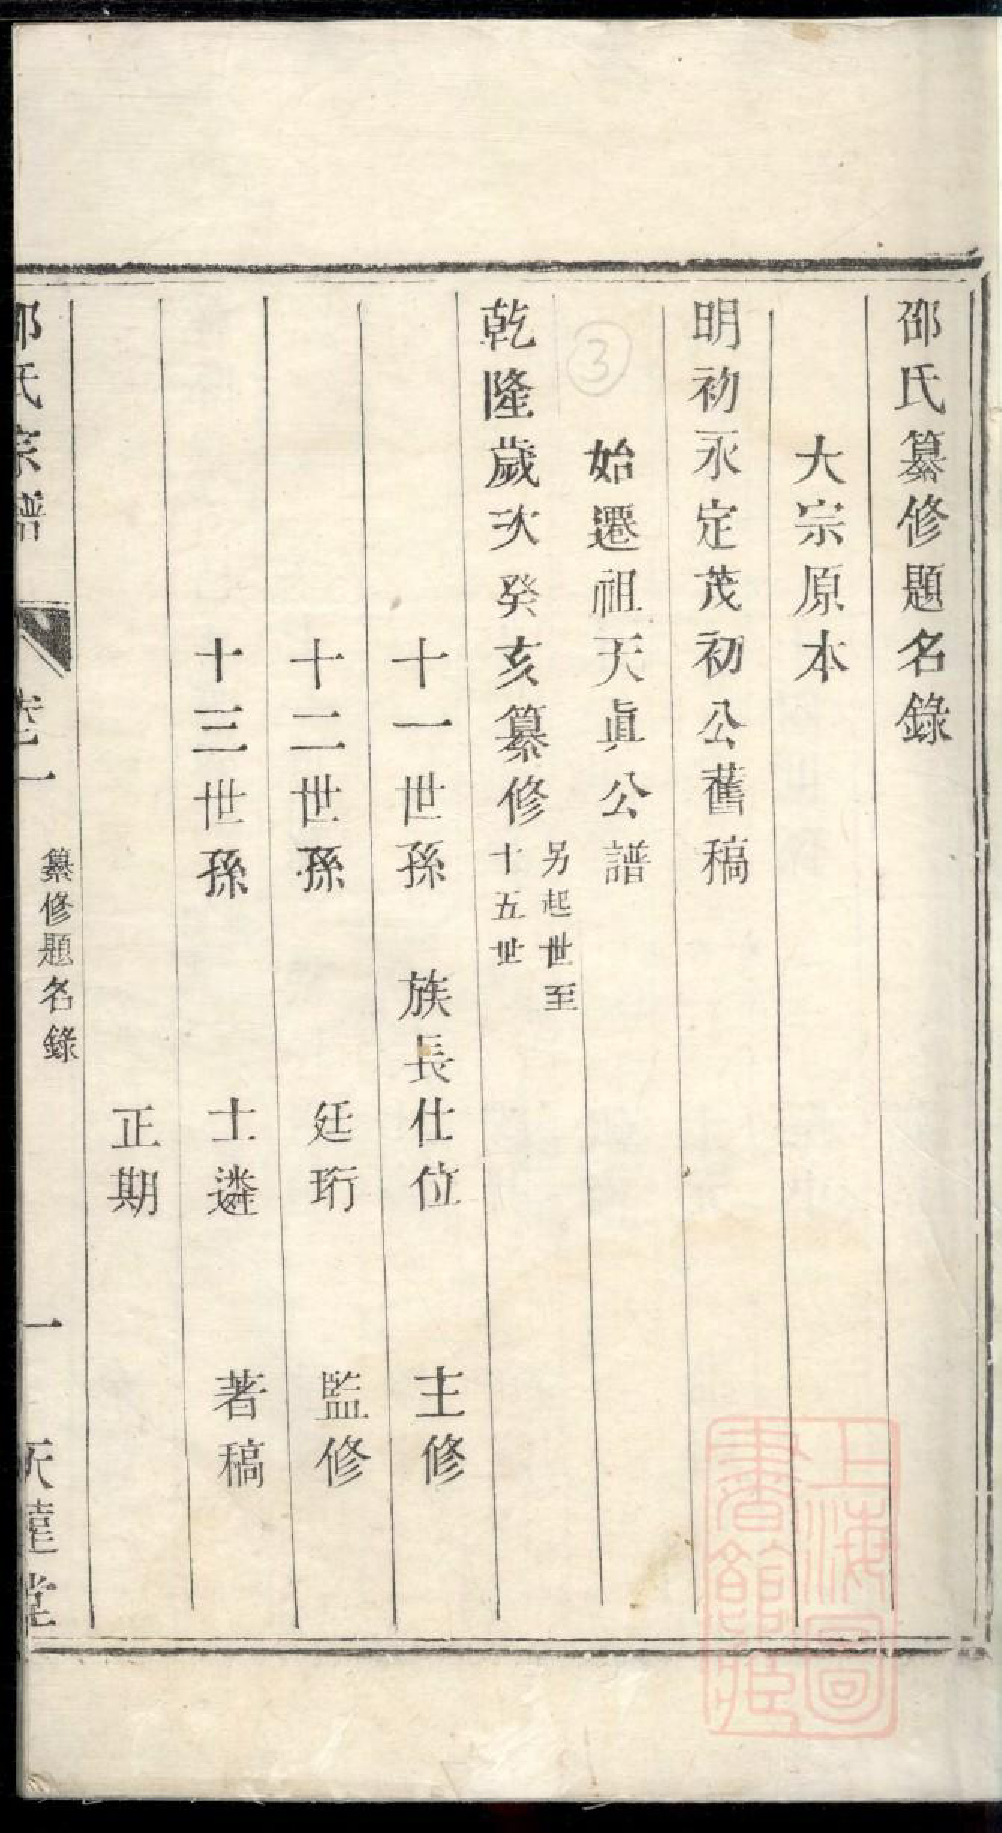 邵氏纂修題名錄
大宗原本
明初永定茂初公舊稿
始遷祖天眞公譜
③
乾隆歲次癸亥纂修 另起世至
十五世
十一世孫 族長仕位 主修
十二世孫 廷珩 監修
十三世孫 士遴 著稿
正期
邵氏宗譜 卷一 纂修題名錄 一 天達堂
上海圖
書館藏